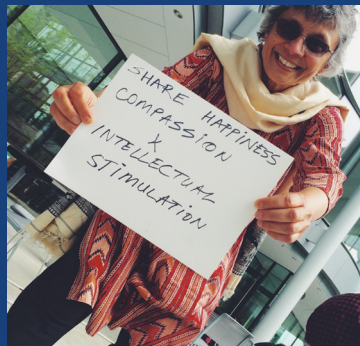 SHARE HAPPINESS
COMPASSION
&
INTELLECTUAL
STIMULATION